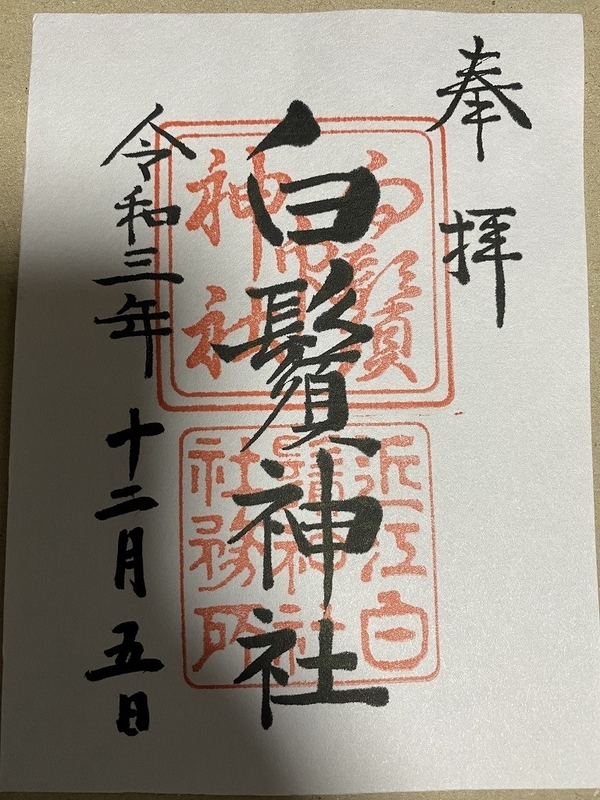 奉拝
白鬚神社
令和三年 十二月 五日
白鬚
神社
近江白
鬚神社
社務所